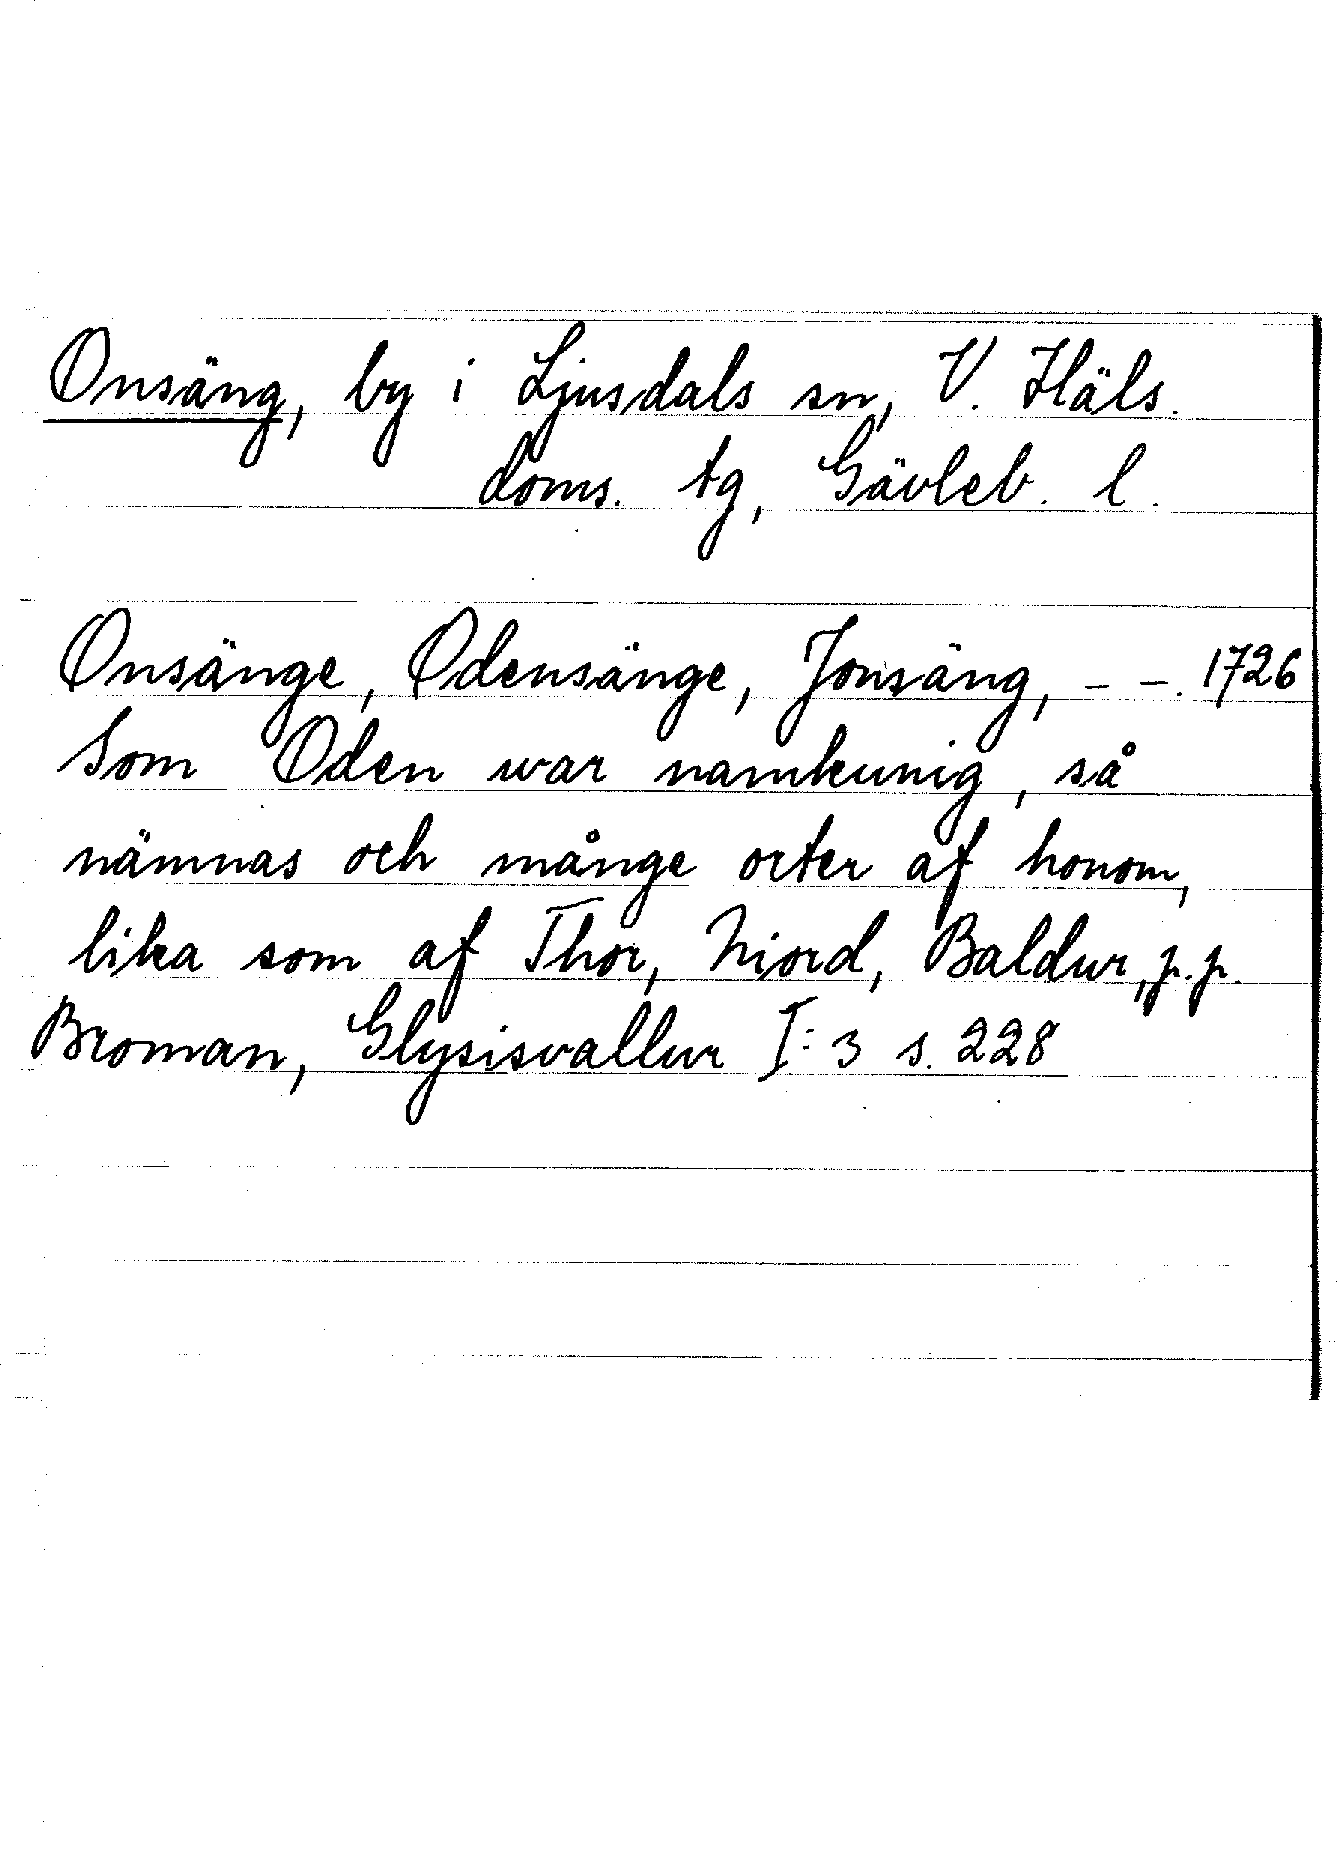 Onsäng, by i Ljusdals sn, V. Häls.
doms. tg, Gävleb. l.
Onsänge, Odensänge, Jonsäng, - -. 1726
Som Oden war namkunig, så
nämnas och månge orter af honom,
lika som af Thor, Niord, Baldur, p.p.
Broman, Glysisvallur I:3 s. 228